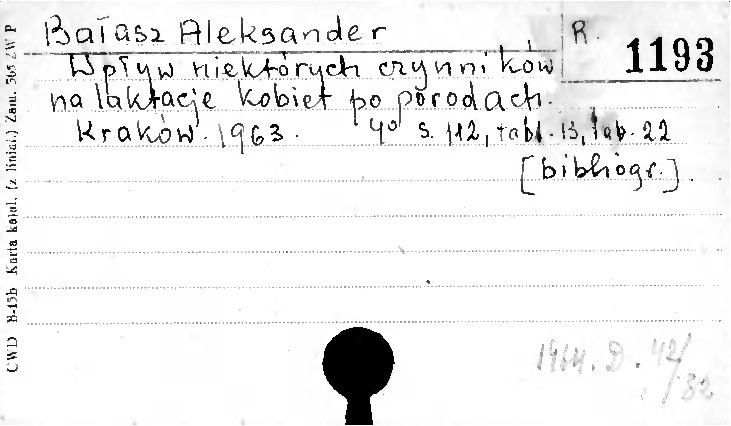 Bałasz Aleksander
R. 1193
Wpływ niektórych czynników
na laktację kobiet po porodach.
Kraków. 1963. 4° s. 112, tabl. 13, tab. 22
[bibliogr.].
1964. D. 42/
/32
CWD B-15b Karta katal. (z liniat.) Zam. 365 ZWP